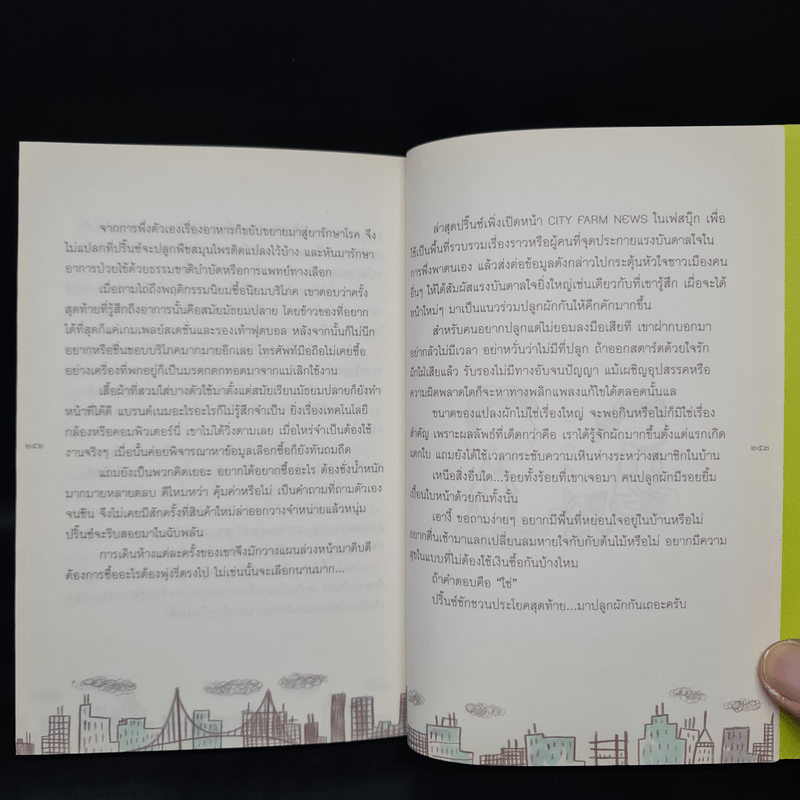 จากการพึ่งตัวเองเรื่องอาหารก็ขยับขยายมาสู่ยารักษาโรค จึง
ไม่แปลกที่ปริ๊นซ์จะปลูกพืชสมุนไพรดัดแปลงไว้บ้าง และหันมารักษา
อาการป่วยไข้ด้วยธรรมชาติบำบัดหรือการแพทย์ทางเลือก
เมื่อถามไถ่ถึงพฤติกรรมนิยมซื้อนิยมบริโภค เขาตอบว่าครั้ง
สุดท้ายที่รู้สึกถึงอาการนั้นคือสมัยมัธยมปลาย โดยข้าวของที่อยาก
ได้ที่สุดก็แค่เกมเพลย์สเตชั่นและรองเท้าฟุตบอล หลังจากนั้นก็ไม่นึก
อยากหรือชื่นชอบบริโภคมากมายอีกเลย โทรศัพท์มือถือไม่เคยซื้อ
อย่างเครื่องที่พกอยู่ก็เป็นมรดกตกทอดมาจากแม่เลิกใช้งาน
เสื้อผ้าที่สวมใส่บางตัวใช้มาตั้งแต่สมัยเรียนมัธยมปลายก็ยังทำ
หน้าที่ได้ดี แบรนด์เนมอะไรอะไรก็ไม่รู้สึกจำเป็น ยิ่งเรื่องเทคโนโลยี
กล้องหรือคอมพิวเตอร์นี่ เขาไม่ได้วิ่งตามเลย เมื่อไหร่จำเป็นต้องใช้
งานจริงๆ เมื่อนั้นค่อยพิจารณาหาข้อมูลเลือกซื้อก็ยังทันถมถืด
แถมยังเป็นพวกคิดเยอะ อยากได้อยากซื้ออะไร ต้องชั่งน้ำหนัก
มากมายหลายตลบ ดีไหมหว่า คุ้มค่าหรือไม่ เป็นคำถามที่ถามตัวเอง
จนชิน จึงไม่เคยมีสักครั้งที่สินค้าใหม่ล่าออกวางจำหน่ายแล้วหนุ่ม
ปริ๊นซ์จะรีบสอยมาในฉับพลัน
การเดินห้างแต่ละครั้งของเขาจึงมักวางแผนล่วงหน้ามาดิบดี
ต้องการซื้ออะไรต้องพุ่งรี่ตรงไป ไม่เช่นนั้นจะเลือกนานมาก...
๒๕๒
ล่าสุดปริ๊นซ์เพิ่งเปิดหน้า CITY FARM NEWS ในเฟสบุ๊ก เพื่อ
ใช้เป็นพื้นที่รวบรวมเรื่องราวหรือผู้คนที่จุดประกายแรงบันดาลใจใน
การพึ่งพาตนเอง แล้วส่งต่อข้อมูลดังกล่าวไปกระตุ้นหัวใจชาวเมืองคน
อื่นๆ ให้ได้สัมผัสแรงบันดาลใจยิ่งใหญ่เช่นเดียวกับที่เขารู้สึก เผื่อจะได้
หน้าใหม่ๆ มาเป็นแนวร่วมปลูกผักกันให้คึกคักมากขึ้น
สำหรับคนอยากปลูกแต่ไม่ยอมลงมือเสียที เขาฝากบอกมา
อย่ากลัวไม่มีเวลา อย่าหวั่นว่าไม่มีที่ปลูก ถ้าออกสตาร์ตด้วยใจรัก
ฝักใฝ่เสียแล้ว รับรองไม่มีทางอับจนปัญญา แม้เผชิญอุปสรรคหรือ
ความผิดพลาดใดก็จะหาทางพลิกแพลงแก้ไขได้ตลอดนั้นแล
ขนาดของแปลงผักไม่ใช่เรื่องใหญ่ จะพอกินหรือไม่ก็มิใช่เรื่อง
สำคัญ เพราะผลลัพธ์ที่เด็ดกว่าคือ เราได้รู้จักผักมากขึ้นตั้งแต่แรกเกิด
แตกใบ แถมยังได้ใช้เวลากระชับความเหินห่างระหว่างสมาชิกในบ้าน
เหนือสิ่งอื่นใด...ร้อยทั้งร้อยที่เขาเจอมา คนปลูกผักมีรอยยิ้ม
เปื้อนใบหน้าด้วยกันทั้งนั้น
เอางี้ ขอถามง่ายๆ อยากมีพื้นที่หย่อนใจอยู่ในบ้านหรือไม่
อยากตื่นเช้ามาแลกเปลี่ยนลมหายใจกับกับต้นไม้หรือไม่ อยากมีความ
สุขในแบบที่ไม่ต้องใช้เงินซื้อกันบ้างไหม
ถ้าคำตอบคือ “ใช่”
ปริ๊นซ์ชักชวนประโยคสุดท้าย...มาปลูกผักกันเถอะครับ
๒๕๓